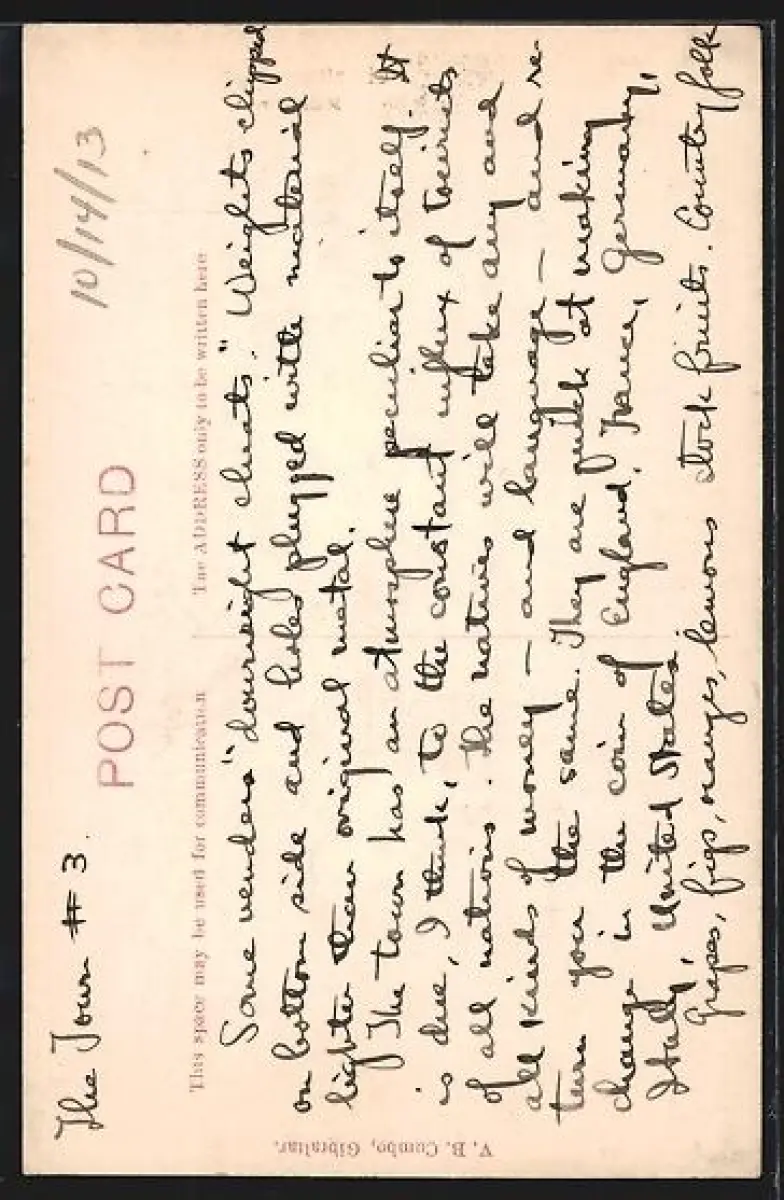 The Town # 3.
10/14/13
POST CARD
This space may be used for communication
The ADDRESS only to be written here
Some venders "downright cheats." Weights clipped
on bottom side and holes plugged with material
lighter than original metal.
The town has an atmosphere peculiar to itself. It
is due, I think, to the constant influx of tourists
of all nations. The natives will take any and
all kinds of money – and language – and re-
turn you the same. They are quick at making
change in the coin of England, France, Germany,
Italy, United States.
Grapes, figs, oranges, lemons stock fruits. Country folk
V. B. Cumbo, Gibraltar.